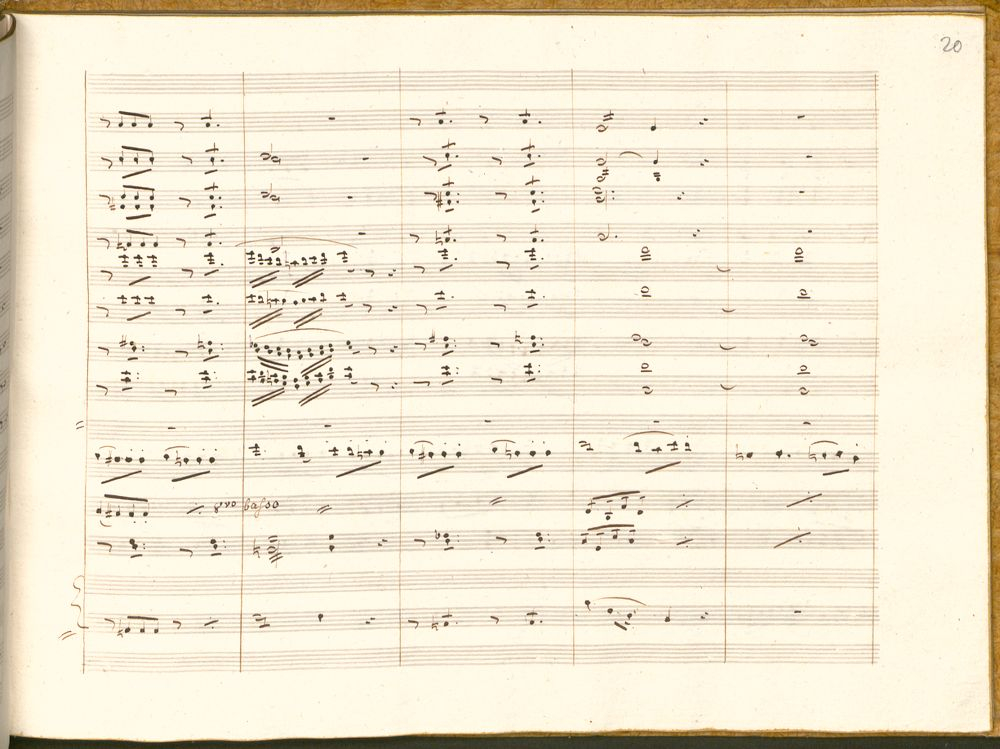 20
8vo basso